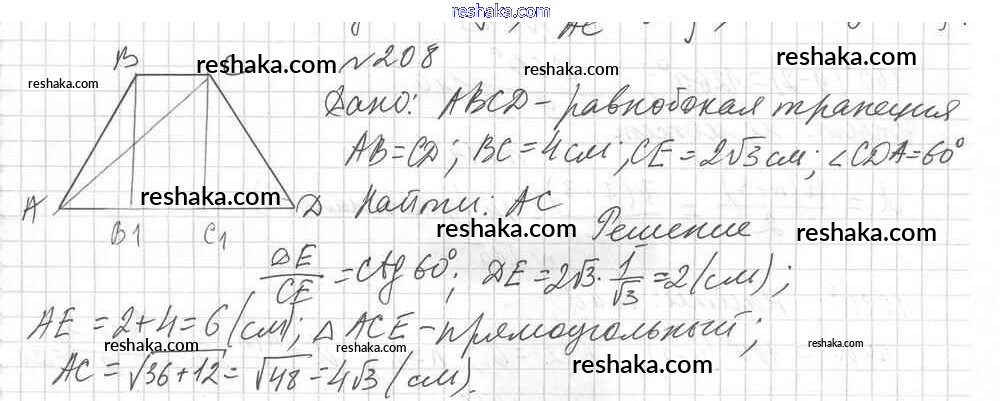 reshaka.com
№208
Дано: ABCD - равнобокая трапеция
AB=CD; BC=4см; CE=2√3 см; ∠CDA=60°
Найти: AC
Решение
B
A D
B1 C1
DE/CE = ctg 60°; DE=2√3·1/√3=2(см);
AE=2+4=6(см); △ACE-прямоугольный;
AC=√36+12=√48=4√3(см).
reshaka.com
reshaka.com
reshaka.com
reshaka.com
reshaka.com
reshaka.com
reshaka.com
reshaka.com
reshaka.com
reshaka.com
reshaka.com
reshaka.com